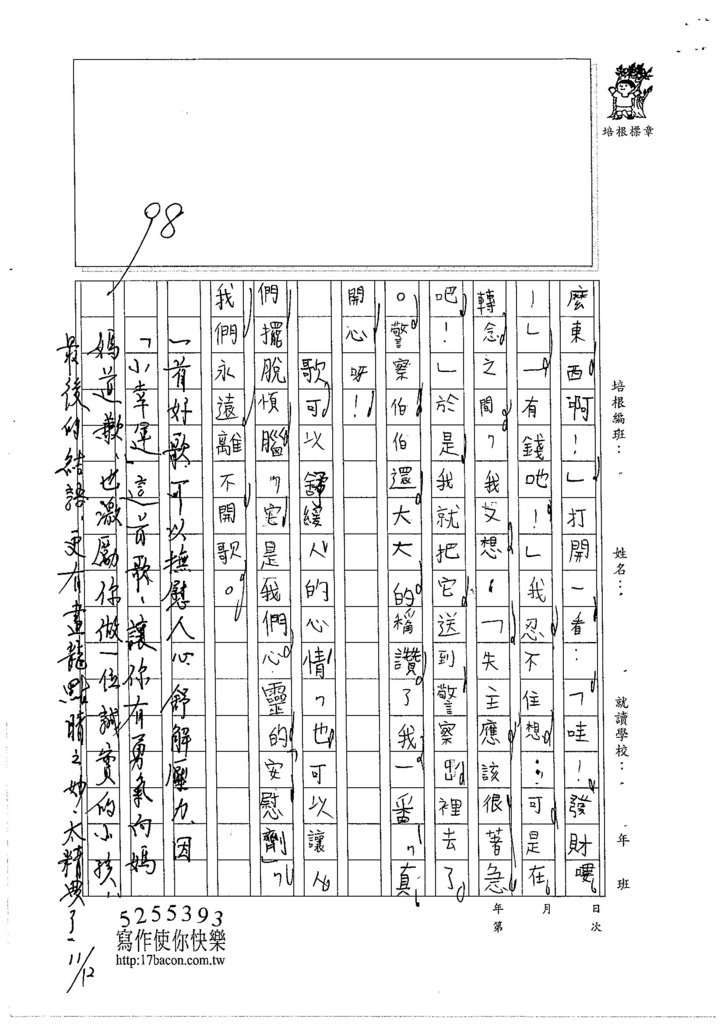 培根標章
98
培根編班：
姓名：
就讀學校：
年　班
麼東西啊！」打開一看：「哇！發財嘍
！」「有錢吔！」我忍不住想：可是在
轉念之間，我又想：「失主應該很著急
吧！」於是我就把它送到警察局裡去了
。警察伯伯還大大的稱讚了我一番，真
開心呀！
歌可以舒緩人的心情，也可以讓人
們擺脫煩腦，它是我們心靈的安慰劑，
我們永遠離不開歌。
一首好歌可以撫慰人心、舒解壓力，因
「小幸運」這首歌，讓你有勇氣向媽
媽道歉，也激勵你做一位誠實的小孩，
最後的結語，更有畫龍點睛之妙，太精典了！11/12
年　月　日
第　次
5255393
寫作使你快樂
http:17bacon.com.tw